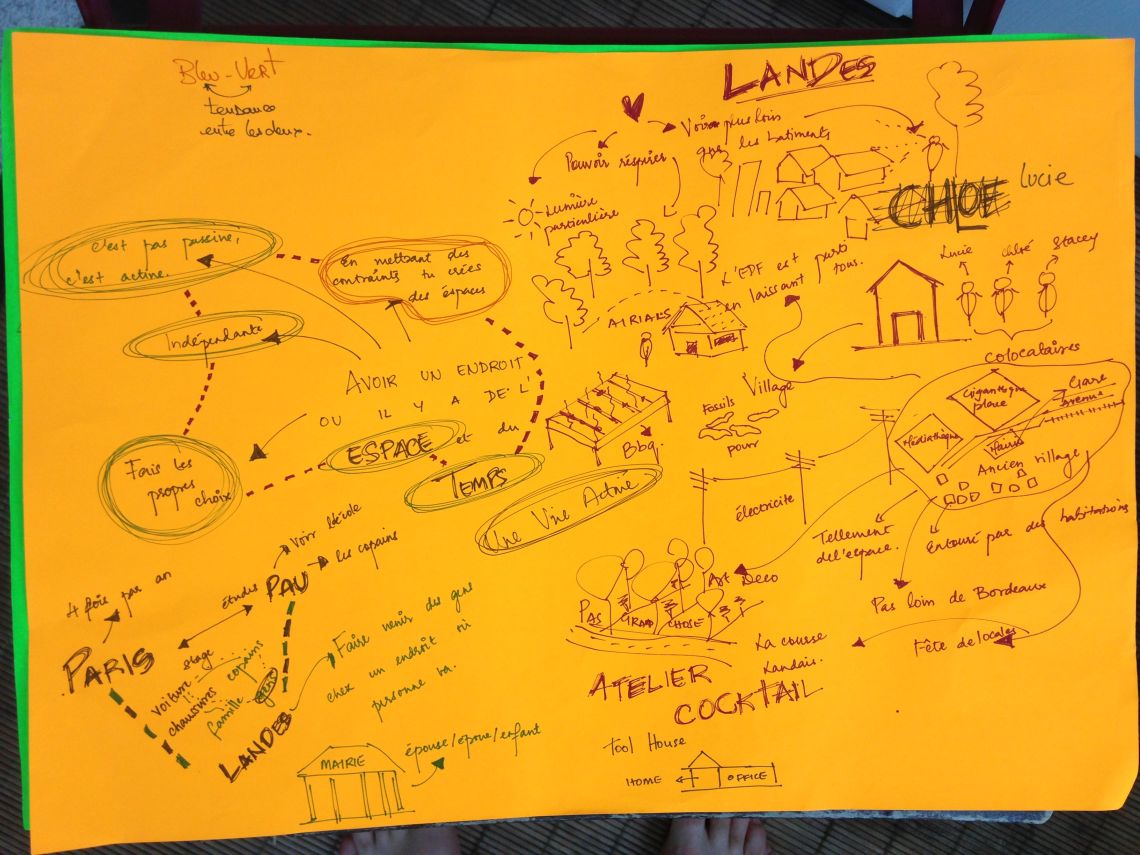 Bleu-Vert
tendance
entre les deux.
LANDES
Voir plus loin
que les batiments
Pouvoir respirer
Lumière
particulière
CHLOE
Lucie
c'est pas passive,
c'est active.
En mettant des
contraints tu crées
des éspaces
Indépendante
AVOIR UN ENDROIT
OU IL Y A DE L'
ESPACE et du
TEMPS
Fais les
propres
choix
Une Vrie Active
L'EDF est parti
en laissant
tous.
AIRIALS
Lucie
Chloé
Stacey
colocataires
Village
Fossils
pour
Bbq
électricité
Gigantesque
place
Gare
avenue
Médiathèque
Mairie
Ancien village
Tellement
de l'espace.
Entouré par des habitations
Pas loin de Bordeaux
Fête de locales
Art Deco
PAS GRAND CHOSE
La course
Landais.
ATELIER
COCKTAIL
Tool House
HOME
OFFICE
Voir l'école
les copains
PAU
études
4 fois par an
PARIS
stage
voiture
chaussures
copains
famille
gens
LANDES
Faire venir des gens
chez un endroit où
personne va.
MAIRIE
épouse/époue/enfant